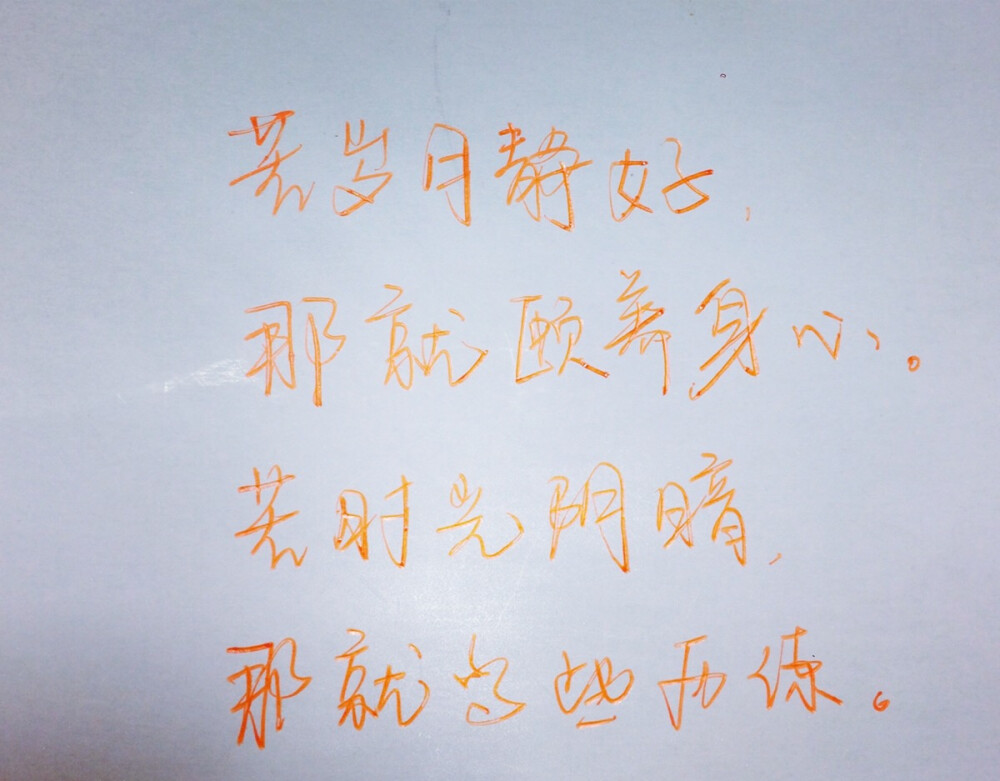 若岁月静好,
那就颐养身心。
若时光阴暗,
那就当些历练。